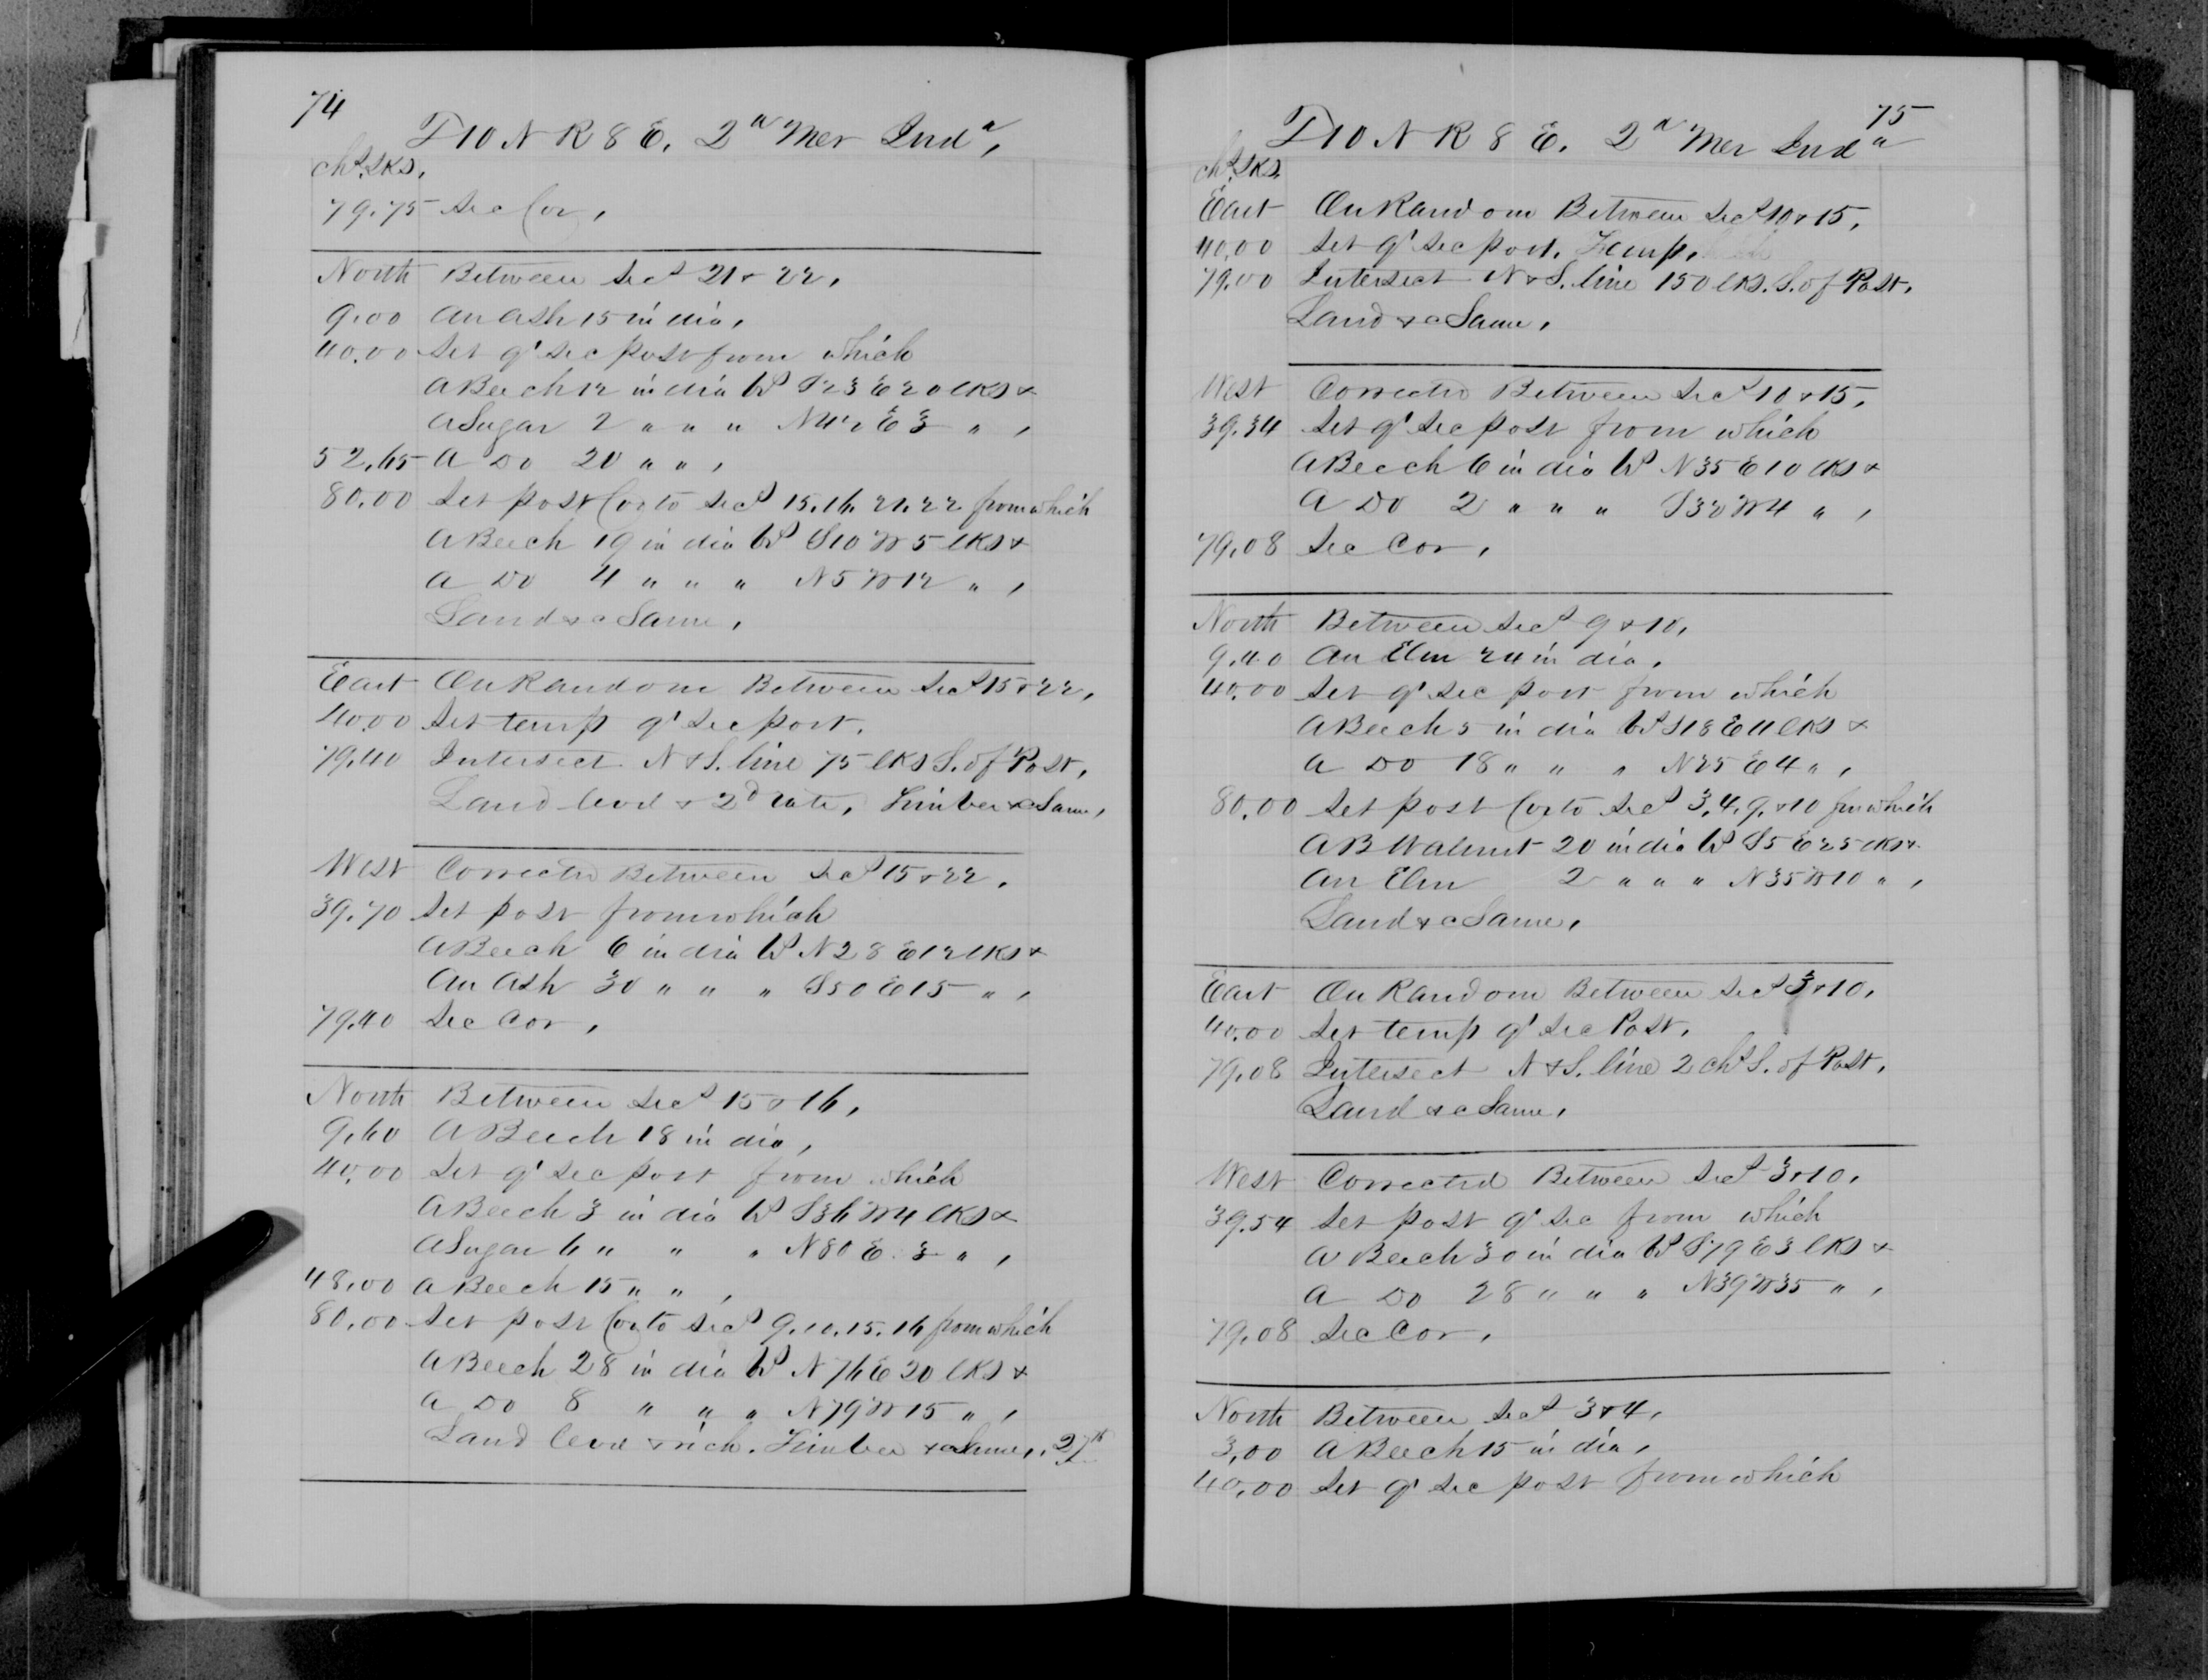 74
T 10 N R 8 E. 2d Mer Inda,
chs. lks.
79.75 Sec Cor,
North Between Secs 21 & 22,
9.00 An Ash 15 in dia,
40.00 Set qr Sec post from which
A Beech 12 in dia bs S23 E20 lks &
A Sugar 2 " " " N42 E 3 " ,
52.65 A Do 20 " " ,
80.00 Set post Cor to Secs 15.16.21.22 from which
A Beech 19 in dia bs S10 W 5 lks &
A Do 4 " " " N5 W12 " ,
Land &c Same,
East On Random Between Secs 15 & 22,
40.00 Set temp qr Sec post.
79.40 Intersect N & S. line 75 lks S. of Post,
Land level & 2d rate, Timber &c Same,
West Corrected Between Secs 15 & 22,
39.70 Set post from which
A Beech 6 in dia bs N28 E12 lks &
An Ash 30 " " " S50 E15 " ,
79.40 Sec Cor,
North Between Secs 15 & 16,
9.60 A Beech 18 in dia,
40.00 Set qr Sec post from which
A Beech 3 in dia bs S36 W4 lks &
A Sugar 6 " " " N80 E. 3 " ,
48.00 A Beech 15 " " ,
80.00 Set post Cor to Secs 9.10.15.16 from which
A Beech 28 in dia bs N76 E20 lks &
A Do 8 " " " N79 W15 " ,
Land level & rich. Timber &c Same,. 27th
75
T 10 N R 8 E. 2d Mer Inda
chs. lks.
East On Random Between Secs 10 & 15,
40.00 Set qr Sec post. Temp,
79.00 Intersect N & S. line 150 lks. S. of Post,
Land &c Same,
West Corrected Between Secs 10 & 15,
39.34 Set qr Sec post from which
A Beech 6 in dia bs N35 E10 lks &
A Do 2 " " " S30 W4 " ,
79.08 Sec Cor,
North Between Secs 9 & 10,
9.40 An Elm 24 in dia,
40.00 Set qr Sec post from which
A Beech 5 in dia bs S18 E11 lks &
A Do 18 " " " N25 E4 " ,
80.00 Set post Cor to Secs 3,4,9,&10 fm which
A B Walnut 20 in dia bs S5 E25 lks &
An Elm 2 " " " N35 W10 " ,
Land &c Same,
East On Random Between Secs 3 & 10,
40.00 Set temp qr Sec Post,
79.08 Intersect N & S. line 2 chs S. of Post,
Land &c Same,
West Corrected Between Secs 3 & 10,
39.54 Set post qr Sec from which
A Beech 30 in dia bs S79 E3 lks &
A Do 28 " " " N39 W35 " ,
79.08 Sec Cor,
North Between Secs 3 & 4,
3.00 A Beech 15 in dia,
40.00 Set qr Sec post from which